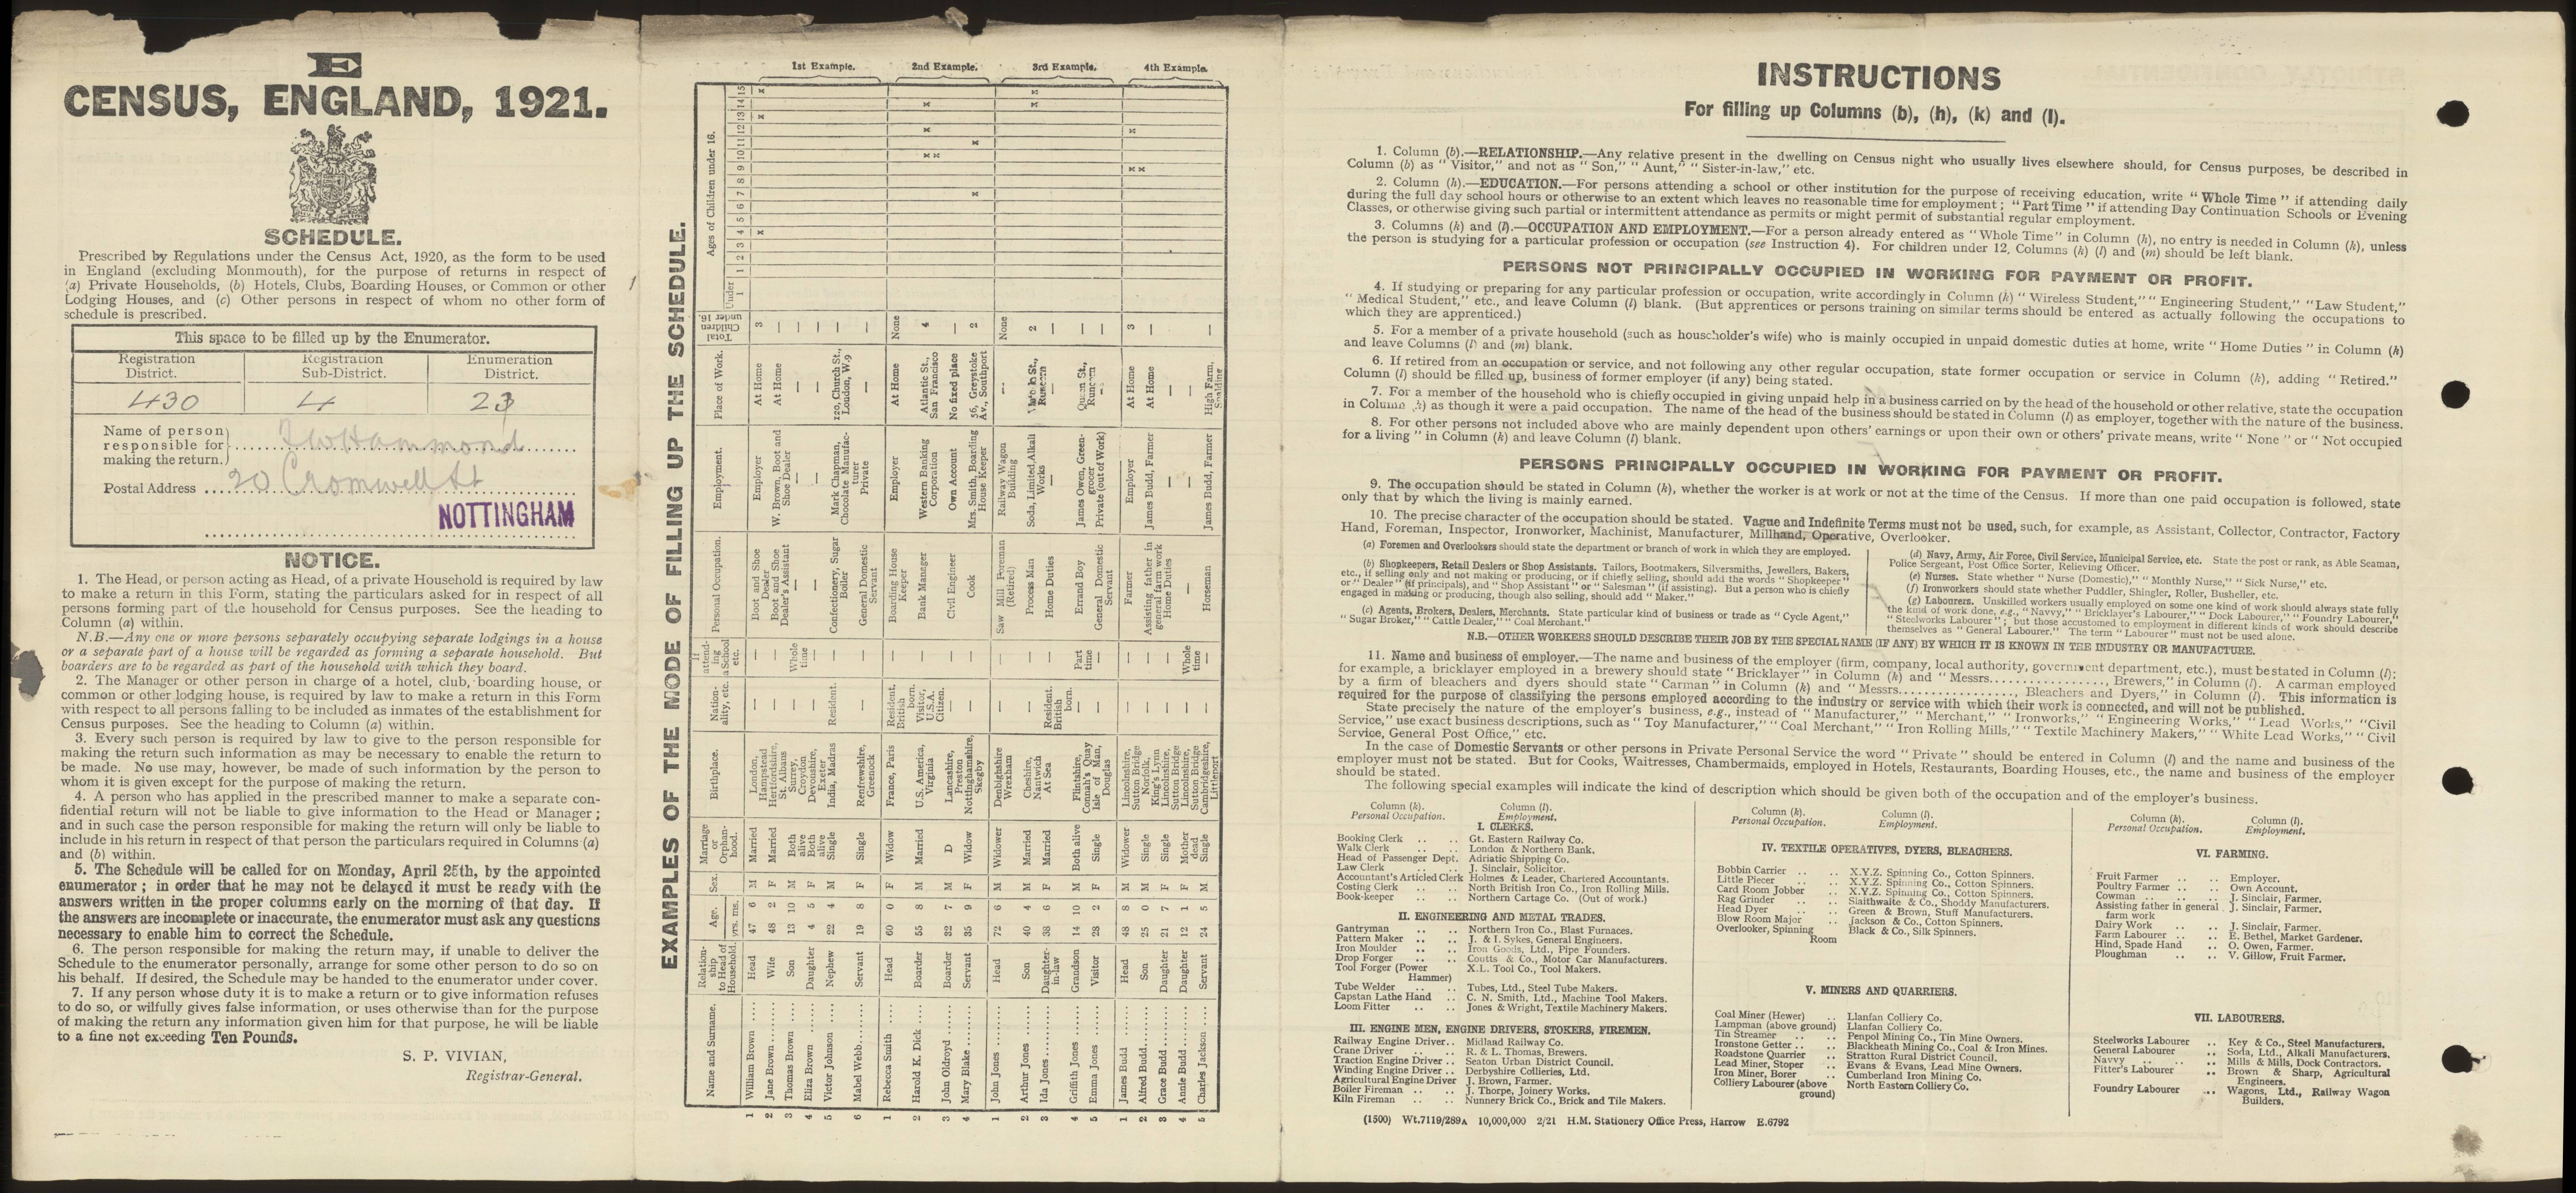 E
CENSUS, ENGLAND, 1921.
SCHEDULE.
Prescribed by Regulations under the Census Act, 1920, as the form to be used
in England (excluding Monmouth), for the purpose of returns in respect of
(a) Private Households, (b) Hotels, Clubs, Boarding Houses, or Common or other
Lodging Houses, and (c) Other persons in respect of whom no other form of
schedule is prescribed.
This space to be filled up by the Enumerator.
Registration District. Registration Sub-District. Enumeration District.
430 4 23
Name of person
responsible for
making the return. Hammond
Postal Address 20 Cromwell St
NOTTINGHAM
NOTICE.
1. The Head, or person acting as Head, of a private Household is required by law
to make a return in this Form, stating the particulars asked for in respect of all
persons forming part of the household for Census purposes. See the heading to
Column (a) within.
N.B.—Any one or more persons separately occupying separate lodgings in a house
or a separate part of a house will be regarded as forming a separate household. But
boarders are to be regarded as part of the household with which they board.
2. The Manager or other person in charge of a hotel, club, boarding house, or
common or other lodging house, is required by law to make a return in this Form
with respect to all persons falling to be included as inmates of the establishment for
Census purposes. See the heading to Column (a) within.
3. Every such person is required by law to give to the person responsible for
making the return such information as may be necessary to enable the return to
be made. No use may, however, be made of such information by the person to
whom it is given except for the purpose of making the return.
4. A person who has applied in the prescribed manner to make a separate con-
fidential return will not be liable to give information to the Head or Manager;
and in such case the person responsible for making the return will only be liable to
include in his return in respect of that person the particulars required in Columns (a)
and (b) within.
5. The Schedule will be called for on Monday, April 25th, by the appointed
enumerator; in order that he may not be delayed it must be ready with the
answers written in the proper columns early on the morning of that day. If
the answers are incomplete or inaccurate, the enumerator must ask any questions
necessary to enable him to correct the Schedule.
6. The person responsible for making the return may, if unable to deliver the
Schedule to the enumerator personally, arrange for some other person to do so on
his behalf. If desired, the Schedule may be handed to the enumerator under cover.
7. If any person whose duty it is to make a return or to give information refuses
to do so, or wilfully gives false information, or uses otherwise than for the purpose
of making the return any information given him for that purpose, he will be liable
to a fine not exceeding Ten Pounds.
S. P. VIVIAN,
Registrar-General.
EXAMPLES OF THE MODE OF FILLING UP THE SCHEDULE.
Name and Surname. Relationship to Head of Household. Age. yrs. ms. Sex. Marriage or Orphanhood. Birthplace. Nationality, etc. If attending a School etc. Personal Occupation. Employment. Place of Work. Total Children under 16. Ages of Children under 16.
Under 1 1 2 3 4 5 6 7 8 9 10 11 12 13 14 15
1st Example.
1 William Brown .... Head 47 6 M Married London, Hampstead — — Boot and Shoe Dealer Employer At Home 3 x x x
2 Jane Brown ...... Wife 48 2 F Married Hertfordshire, St. Albans — — Boot and Shoe Dealer's Assistant W. Brown, Boot and Shoe Dealer At Home —
3 Thomas Brown .... Son 13 10 M Both alive Surrey, Croydon — Whole time — — — —
4 Eliza Brown .... Daughter 4 5 F Both alive Devonshire, Exeter — — — — — —
5 Victor Johnson .... Nephew 22 4 M Single India, Madras Resident. — Confectionery, Sugar Boiler Mark Chapman, Chocolate Manufacturer 120, Church St., London, W.9 —
6 Mabel Webb...... Servant 19 8 F Single Renfrewshire, Greenock — — General Domestic Servant Private — —
2nd Example.
1 Rebecca Smith .... Head 60 0 F Widow France, Paris Resident, British born. — Boarding House Keeper Employer At Home None
2 Harold K. Dick .... Boarder 55 8 M Married U.S. America, Virginia Visitor, U.S.A. Citizen. — Bank Manager Western Banking Corporation Atlantic St., San Francisco 4 x x x x
3 John Oldroyd ...... Boarder 32 7 M D Lancashire, Preston — — Civil Engineer Own Account No fixed place —
4 Mary Blake ...... Servant 35 9 F Widow Nottinghamshire, Skegby — — Cook Mrs. Smith, Boarding House Keeper 56, Greystoke Av., Southport 2 x x
3rd Example.
1 John Jones ...... Head 72 6 M Widower Denbighshire Wrexham — — Saw Mill Foreman (Retired) Railway Wagon Building — None
2 Arthur Jones ...... Son 40 4 M Married Cheshire, Nantwich — — Process Man Soda, Limited, Alkali Works St., Runcorn 2 x x
3 Ida Jones ...... Daughter-in-law 38 6 F Married At Sea Resident. British born. — Home Duties — — —
4 Griffith Jones .... Grandson 14 10 M Both alive Flintshire, Connah's Quay — Part time Errand Boy James Owen, Greengrocer Queen St., Runcorn —
5 Emma Jones .... Visitor 28 2 F Single Isle of Man, Douglas — — General Domestic Servant Private (out of Work) — —
4th Example.
1 James Budd ...... Head 48 8 M Widower Lincolnshire, Sutton Bridge — — Farmer Employer At Home 3 x x x
2 Alfred Budd...... Son 25 0 M Single Norfolk, King's Lynn — — Assisting father in general farm work James Budd, Farmer At Home —
3 Grace Budd...... Daughter 21 7 F Single Lincolnshire, Sutton Bridge — — Home Duties — —
4 Annie Budd ...... Daughter 12 1 F Mother dead Lincolnshire, Sutton Bridge — Whole time — — —
5 Charles Jackson .... Servant 24 5 M Single Cambridgeshire, Littleport — — Horseman James Budd, Farmer High Farm, Spalding —
INSTRUCTIONS
For filling up Columns (b), (h), (k) and (l).
1. Column (b).—RELATIONSHIP.—Any relative present in the dwelling on Census night who usually lives elsewhere should, for Census purposes, be described in
Column (b) as "Visitor," and not as "Son," "Aunt," "Sister-in-law," etc.
2. Column (h).—EDUCATION.—For persons attending a school or other institution for the purpose of receiving education, write "Whole Time" if attending daily
during the full day school hours or otherwise to an extent which leaves no reasonable time for employment; "Part Time" if attending Day Continuation Schools or Evening
Classes, or otherwise giving such partial or intermittent attendance as permits or might permit of substantial regular employment.
3. Columns (k) and (l).—OCCUPATION AND EMPLOYMENT.—For a person already entered as "Whole Time" in Column (h), no entry is needed in Column (k), unless
the person is studying for a particular profession or occupation (see Instruction 4). For children under 12, Columns (k) (l) and (m) should be left blank.
PERSONS NOT PRINCIPALLY OCCUPIED IN WORKING FOR PAYMENT OR PROFIT.
4. If studying or preparing for any particular profession or occupation, write accordingly in Column (k) "Wireless Student," "Engineering Student," "Law Student,"
"Medical Student," etc., and leave Column (l) blank. (But apprentices or persons training on similar terms should be entered as actually following the occupations to
which they are apprenticed.)
5. For a member of a private household (such as householder's wife) who is mainly occupied in unpaid domestic duties at home, write "Home Duties" in Column (k)
and leave Columns (l) and (m) blank.
6. If retired from an occupation or service, and not following any other regular occupation, state former occupation or service in Column (k), adding "Retired."
Column (l) should be filled up, business of former employer (if any) being stated.
7. For a member of the household who is chiefly occupied in giving unpaid help in a business carried on by the head of the household or other relative, state the occupation
in Column (k) as though it were a paid occupation. The name of the head of the business should be stated in Column (l) as employer, together with the nature of the business.
8. For other persons not included above who are mainly dependent upon others' earnings or upon their own or others' private means, write "None" or "Not occupied
for a living" in Column (k) and leave Column (l) blank.
PERSONS PRINCIPALLY OCCUPIED IN WORKING FOR PAYMENT OR PROFIT.
9. The occupation should be stated in Column (k), whether the worker is at work or not at the time of the Census. If more than one paid occupation is followed, state
only that by which the living is mainly earned.
10. The precise character of the occupation should be stated. Vague and Indefinite Terms must not be used, such, for example, as Assistant, Collector, Contractor, Factory
Hand, Foreman, Inspector, Ironworker, Machinist, Manufacturer, Millhand, Operative, Overlooker.
(a) Foremen and Overlookers should state the department or branch of work in which they are employed.
(b) Shopkeepers, Retail Dealers or Shop Assistants. Tailors, Bootmakers, Silversmiths, Jewellers, Bakers,
etc., if selling only and not making or producing, or if chiefly selling, should add the words "Shopkeeper"
or "Dealer" (if principals), and "Shop Assistant" or "Salesman" (if assisting). But a person who is chiefly
engaged in making or producing, though also selling, should add "Maker."
(c) Agents, Brokers, Dealers, Merchants. State particular kind of business or trade as "Cycle Agent,"
"Sugar Broker," "Cattle Dealer," "Coal Merchant."
(d) Navy, Army, Air Force, Civil Service, Municipal Service, etc. State the post or rank, as Able Seaman,
Police Sergeant, Post Office Sorter, Relieving Officer.
(e) Nurses. State whether "Nurse (Domestic)," "Monthly Nurse," "Sick Nurse," etc.
(f) Ironworkers should state whether Puddler, Shingler, Roller, Busheller, etc.
(g) Labourers. Unskilled workers usually employed on some one kind of work should always state fully
the kind of work done, e.g., "Navvy," "Bricklayer's Labourer," "Dock Labourer," "Foundry Labourer,"
"Steelworks Labourer"; but those accustomed to employment in different kinds of work should describe
themselves as "General Labourer." The term "Labourer" must not be used alone.
N.B.—OTHER WORKERS SHOULD DESCRIBE THEIR JOB BY THE SPECIAL NAME (IF ANY) BY WHICH IT IS KNOWN IN THE INDUSTRY OR MANUFACTURE.
11. Name and business of employer.—The name and business of the employer (firm, company, local authority, government department, etc.), must be stated in Column (l);
for example, a bricklayer employed in a brewery should state "Bricklayer" in Column (k) and "Messrs..............., Brewers," in Column (l). A carman employed
by a firm of bleachers and dyers should state "Carman" in Column (k) and "Messrs..............., Bleachers and Dyers," in Column (l). This information is
required for the purpose of classifying the persons employed according to the industry or service with which their work is connected, and will not be published.
State precisely the nature of the employer's business, e.g., instead of "Manufacturer," "Merchant," "Ironworks," "Engineering Works," "Lead Works," "Civil
Service," use exact business descriptions, such as "Toy Manufacturer," "Coal Merchant," "Iron Rolling Mills," "Textile Machinery Makers," "White Lead Works," "Civil
Service, General Post Office," etc.
In the case of Domestic Servants or other persons in Private Personal Service the word "Private" should be entered in Column (l) and the name and business of the
employer must not be stated. But for Cooks, Waitresses, Chambermaids, employed in Hotels, Restaurants, Boarding Houses, etc., the name and business of the employer
should be stated.
The following special examples will indicate the kind of description which should be given both of the occupation and of the employer's business.
Column (k). Personal Occupation. Column (l). Employment.
I. CLERKS.
Booking Clerk .. .. Gt. Eastern Railway Co.
Walk Clerk .. .. London & Northern Bank.
Head of Passenger Dept. Adriatic Shipping Co.
Law Clerk .. .. J. Sinclair, Solicitor.
Accountant's Articled Clerk Holmes & Leader, Chartered Accountants.
Costing Clerk .. .. North British Iron Co., Iron Rolling Mills.
Book-keeper .. .. Northern Cartage Co. (Out of work.)
II. ENGINEERING AND METAL TRADES.
Gantryman .. .. Northern Iron Co., Blast Furnaces.
Pattern Maker .. .. J. & I. Sykes, General Engineers.
Iron Moulder .. .. Iron Goods, Ltd., Pipe Founders.
Drop Forger .. .. Coutts & Co., Motor Car Manufacturers.
Tool Forger (Power Hammer) X.L. Tool Co., Tool Makers.
Tube Welder .. .. Tubes, Ltd., Steel Tube Makers.
Capstan Lathe Hand .. C. N. Smith, Ltd., Machine Tool Makers.
Loom Fitter .. .. Jones & Wright, Textile Machinery Makers.
III. ENGINE MEN, ENGINE DRIVERS, STOKERS, FIREMEN.
Railway Engine Driver.. Midland Railway Co.
Crane Driver .. .. R. & L. Thomas, Brewers.
Traction Engine Driver .. Seaton Urban District Council.
Winding Engine Driver .. Derbyshire Collieries, Ltd.
Agricultural Engine Driver J. Brown, Farmer.
Boiler Fireman .. .. J. Thorpe, Joinery Works.
Kiln Fireman .. .. Nunnery Brick Co., Brick and Tile Makers.
Column (k). Personal Occupation. Column (l). Employment.
IV. TEXTILE OPERATIVES, DYERS, BLEACHERS.
Bobbin Carrier .. .. X.Y.Z. Spinning Co., Cotton Spinners.
Little Piecer .. .. X.Y.Z. Spinning Co., Cotton Spinners.
Card Room Jobber .. X.Y.Z. Spinning Co., Cotton Spinners.
Rag Grinder .. .. Slaithwaite & Co., Shoddy Manufacturers.
Head Dyer .. .. Green & Brown, Stuff Manufacturers.
Blow Room Major .. Jackson & Co., Cotton Spinners.
Overlooker, Spinning Room Black & Co., Silk Spinners.
V. MINERS AND QUARRIERS.
Coal Miner (Hewer) .. Llanfan Colliery Co.
Lampman (above ground) Llanfan Colliery Co.
Tin Streamer .. .. Penpol Mining Co., Tin Mine Owners.
Ironstone Getter .. .. Blackheath Mining Co., Coal & Iron Mines.
Roadstone Quarrier .. Stratton Rural District Council.
Lead Miner, Stoper .. Evans & Evans, Lead Mine Owners.
Iron Miner, Borer .. Cumberland Iron Mining Co.
Colliery Labourer (above ground) North Eastern Colliery Co.
Column (k). Personal Occupation. Column (l). Employment.
VI. FARMING.
Fruit Farmer .. .. Employer.
Poultry Farmer .. .. Own Account.
Cowman .. .. J. Sinclair, Farmer.
Assisting father in general farm work J. Sinclair, Farmer.
Dairy Work .. .. J. Sinclair, Farmer.
Farm Labourer .. .. E. Bethel, Market Gardener.
Hind, Spade Hand .. O. Owen, Farmer.
Ploughman .. .. V. Gillow, Fruit Farmer.
VII. LABOURERS.
Steelworks Labourer .. Key & Co., Steel Manufacturers.
General Labourer .. Soda, Ltd., Alkali Manufacturers.
Navvy .. .. Mills & Mills, Dock Contractors.
Fitter's Labourer .. Brown & Sharp, Agricultural Engineers.
Foundry Labourer .. Wagons, Ltd., Railway Wagon Builders.
(1500) Wt.7119/289A 10,000,000 2/21 H.M. Stationery Office Press, Harrow E.6792